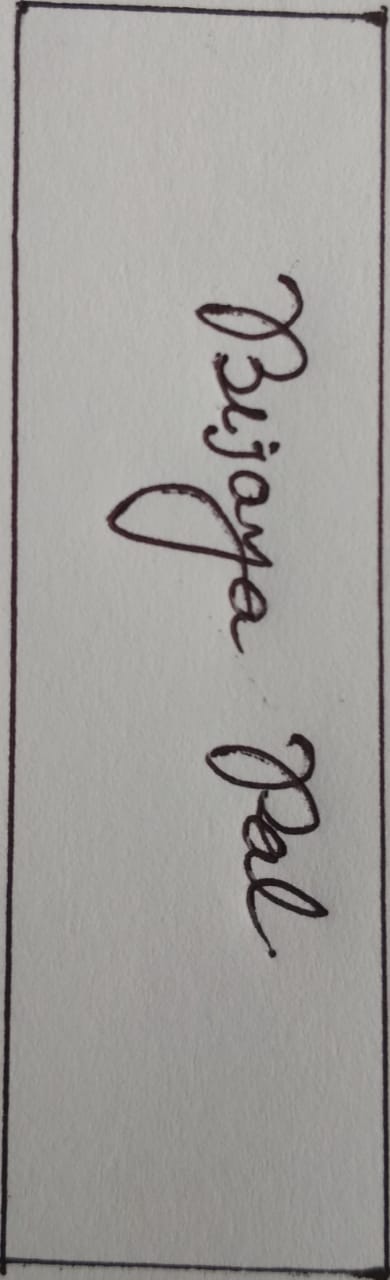 Bijaya Pal